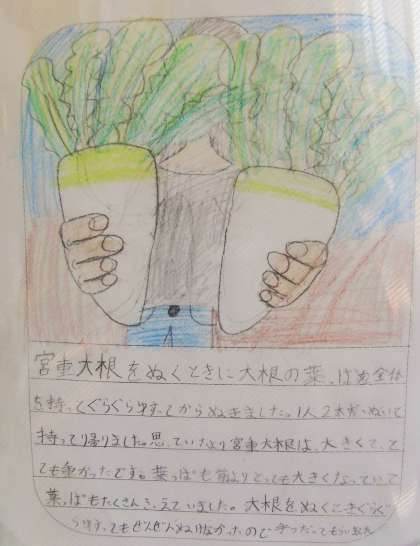 宮重大根をぬくときに大根の葉っぱの全体
を持ってぐらぐらゆすってからぬきました。1人2本ずつぬいて
持って帰りました。思っていたより宮重大根は、大きくて、と
ても重かったです。葉っぱも前よりとっても大きくなっていて
葉っぱもたくさんふえていました。大根をぬくときぐらぐ
らゆすってもぜんぜんぬけなかったので手つだってもらいました